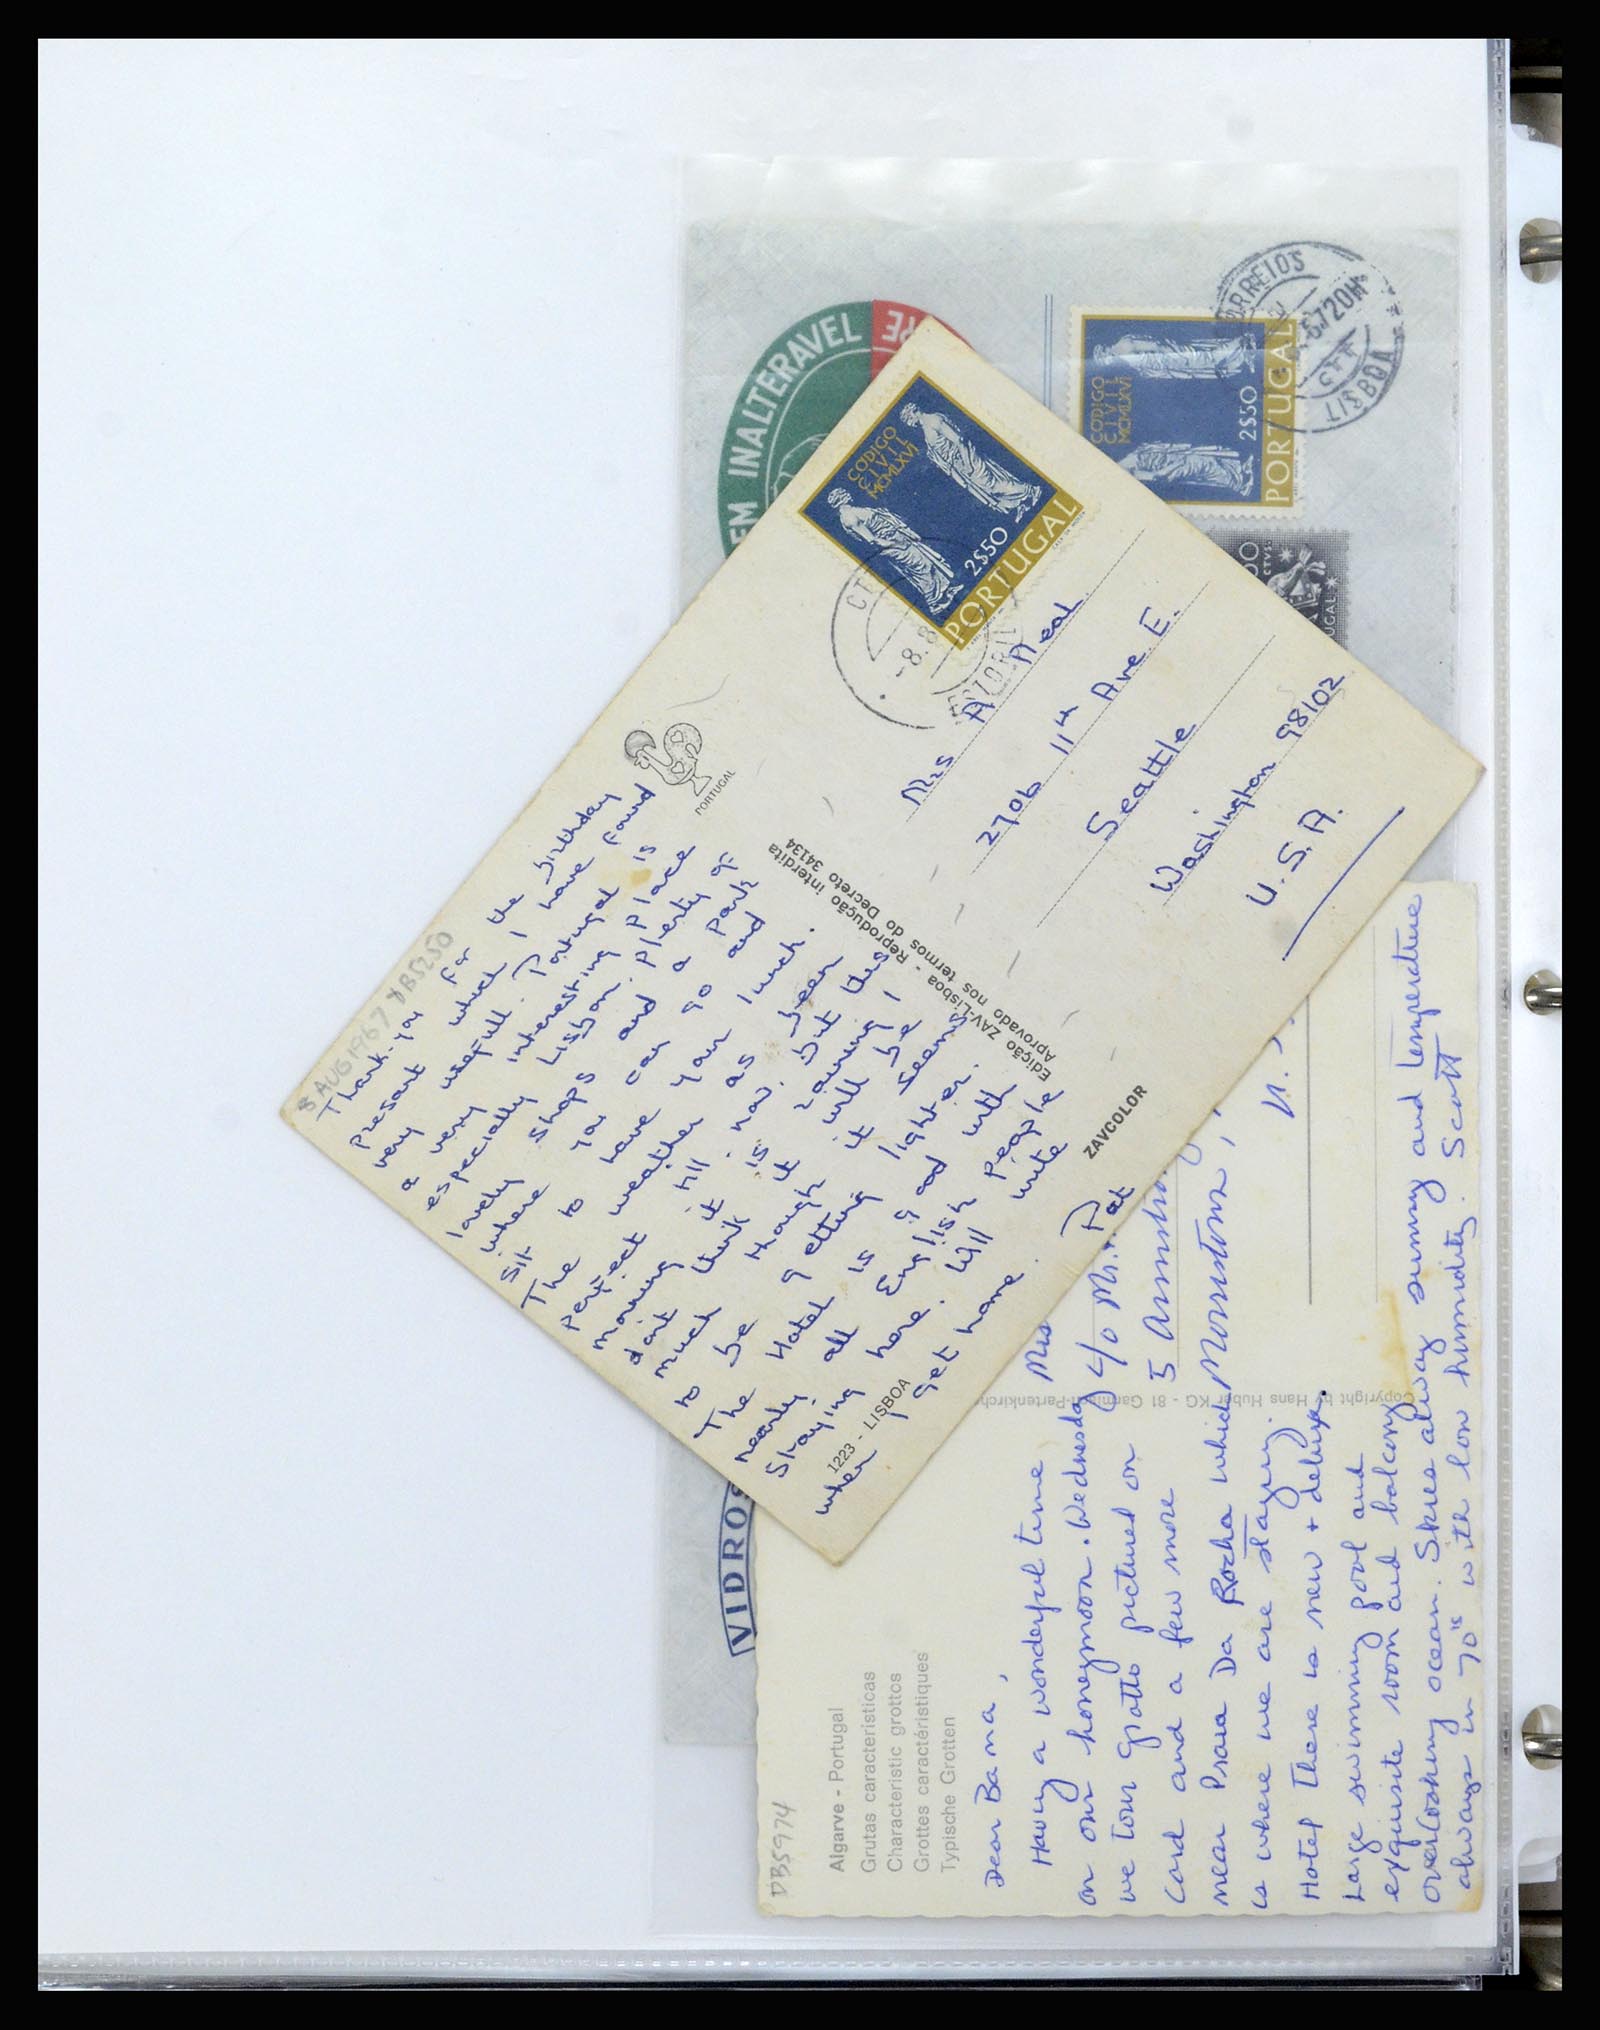 CORREIOS
67 20H
CTF
LISBOA
CODIGO
CIVIL
MCMLXVI
2$50
PORTUGAL
EM INALTERAVEL
VIDROS
8 AUG 1967 DB5250
CODIGO
CIVIL
MCMLXVI
2$50
PORTUGAL
CT
-8.8
PORTUGAL
Thank-you for the birthday
present which I have found
very usefull. Portugal is
a very interesting place
especially Lisbon. Plenty of
lovely shops and a park
where you can go and
sit to have your lunch.
The weather as been
perfect till now. but this
morning it is raining I
don't think it will be
much though it seems
to be getting lighter.
The Hotel is good with
nearly all English people
staying here. Will write
when I get home.
Pat
1223 - LISBOA
ZAVCOLOR
Edição ZAV-Lisboa - Reprodução interdita
Aprovado nos termos do Decreto 34134
Miss A Neal
2706 11th Ave E.
Seattle
Washington 98102
U.S.A.
DB5974
Algarve - Portugal
Grutas caracteristicas
Characteristic grottos
Grottes caractéristiques
Typische Grotten
Dear Bama,
Having a wonderful time
on our honeymoon. Wednesday
we tour grotto pictured on
card and a few more
near Praia Da Rocha which
is where we are staying.
Hotel there is new + deluxe.
Large swimming pool and
exquisite room and balcony
overlooking ocean. Skies alway sunny and temperature
always in 70's with low humidity. Scott
c/o Mr.
5
Copyright by Hans Huber KG - 81 Garmisch-Partenkirche